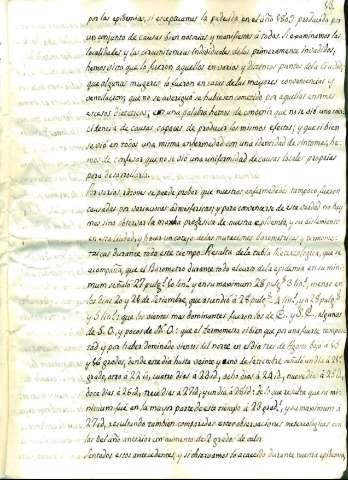 por las epidemias, si esceptuamos la padecida en el año 1803 producida por
un conjunto de causas bien notorias y manifiestas á todos. Si examinamos las
localidades y las circunstancias individuales de los primeramente invadidos,
hemos visto que lo fueron aquellos en varios y distintos puntos de la Ciudad,
que algunas mugeres lo fueron en casas de las mayores conveniencias y
ventilacion; que no se averiguó se hubiesen cometido por aquellas enormes
escesos dieteticos; en una palabra hemos de convenir que no se vió una coin-
cidencia de causas capaces de producir los mismos efectos; y que si bien
se vió en todos una misma enfermedad con una identidad de sintomas, he-
mos de confesar que no se vió una uniformidad de causas locales propias
para desarrollarla.
Por varias razones se puede probar que nuestras enfermedades tampoco fueron
causadas por variaciones atmosfericas; y para convencerse de esta verdad no hay
mas sino observar la marcha de nuestra epidemia, y su aislamiento
en esta ciudad, y hacer un cotejo de las mutaciones barometricas y termome-
tricas durante todo este tiempo. Resulta de la tabla Meteorologica, que se
acompaña, que el Barometro durante todo el curso de la epidemia en su míni-
mum señaló 27 pulg.s y en su maximum 28 pulg.s 3 lin.s, menos en
los dias 20 y 26 de Setiembre, que ascendió á 28 pulg.s 4 lin.s, y a 28 pulg.s
y 5 lin.s: que los vientos mas dominantes fueron los de E. y S.E., algunos
de S.O., y pocos de N.O.: que el termometro si bien que por una fuerte tempes-
tad y por haber dominado vientos del norte en el dia tres de Agosto bajó á
grados, desde este dia hasta veinte y uno de Setiembre señaló un dia á 21
grados, otro á 22 id, cuatro dias á 23 id, ocho dias á 24 id, nueve dias á 25 id,
doce dias á 26 id, trece dias á 27 id; y un dia á 28 id: de lo que resulta que su mi-
nimum fué en la mayor parte de este tiempo á 26 grad.s, y su maximum á
27 id, resultando tambien comparadas estas observaciones meteorologicas con
las del año anterior un aumento de 2 grados de calor.
Sentados estos antecedentes, y si observamos lo acaecido durante nuestra epidemia,